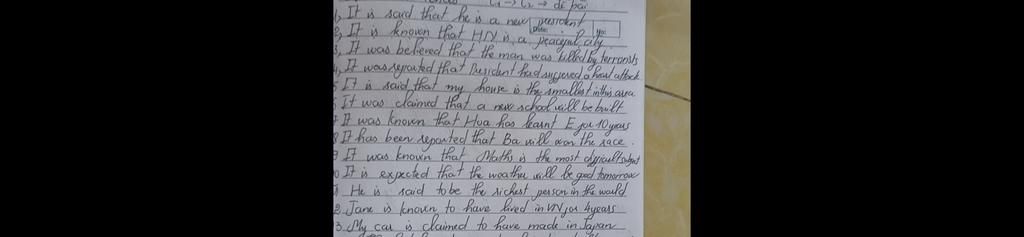 C1 → C2 → dé bài
1, It is said that he is a new president
2, It is known that HN is a peaceful city
3, It was believed that the man was killed by terrorists
4, It was reported that President had suffered a heart attack
5 It is said that my house is the smallest in this area
6 It was claimed that a new school will be built
7 It was known that Hua has learnt E for 10 years
8 It has been reported that Ba will won the race.
9 It was known that Maths is the most difficult subject
10 It is expected that the weather will be good tomorrow
1 He is said to be the richest person in the world
2. Jane is known to have lived in VN for 4 years
3. My car is claimed to have made in Japan